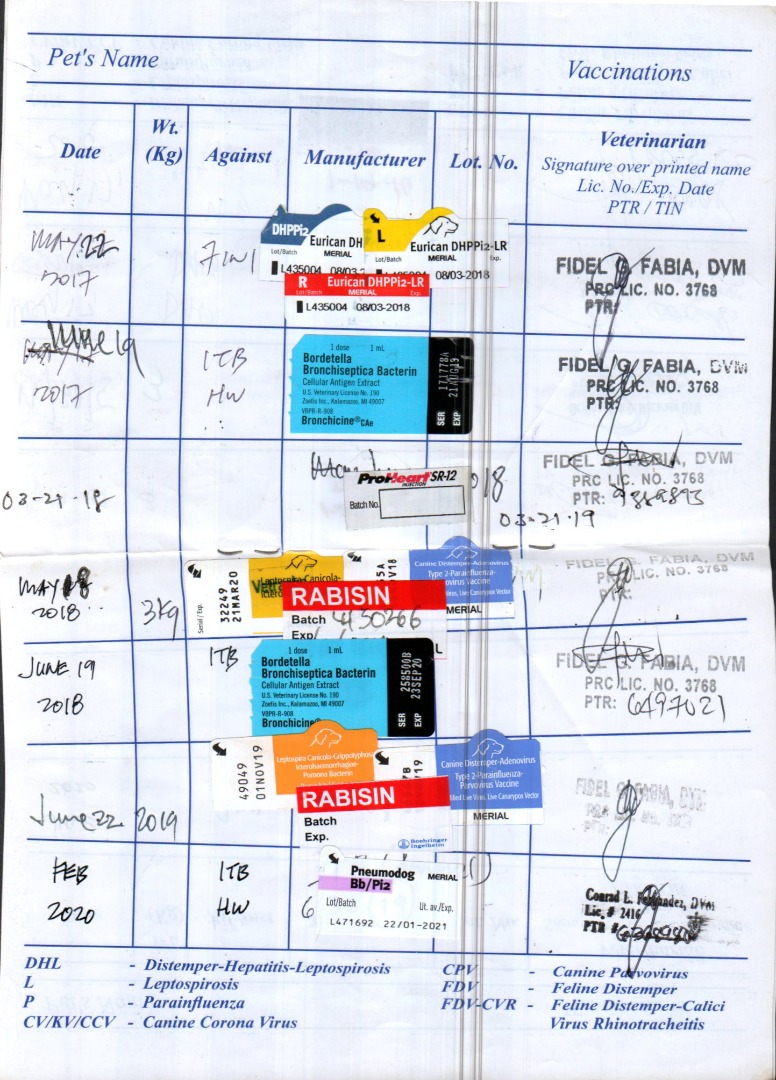 Pet's Name
Vaccinations
Date
Wt. (Kg)
Against
Manufacturer
Lot. No.
Veterinarian
Signature over printed name
Lic. No./Exp. Date
PTR / TIN
MAY 22
2017
7 IN 1
DHPPi2
Eurican DH
Lot/Batch MERIAL
L435004 08/03.2
L
Eurican DHPPi2-LR
Lot/Batch MERIAL Exp.
435004 08/03-2018
R Eurican DHPPi2-LR
Lot/Batch MERIAL Exp.
L435004 08/03-2018
FIDEL G. FABIA, DVM
PRC LIC. NO. 3768
PTR:
June 19
2017
ITB
HW
1 dose 1 mL
Bordetella
Bronchiseptica Bacterin
Cellular Antigen Extract
U.S. Veterinary License No. 190
Zoetis Inc., Kalamazoo, MI 49007
VBPR-R-908
Bronchicine® CAe
SER 171778A
EXP 21AUG19
FIDEL G. FABIA, DVM
PRC LIC. NO. 3768
PTR:
03-21-18
ProHeart SR-12
INJECTION
Batch No.
018
03-21-19
FIDEL G. FABIA, DVM
PRC LIC. NO. 3768
PTR:
MAY 18
2018
3kg
Serial / Exp.
32249
21MAR20
Leptospira Canicola-
Canine Distemper-Adenovirus
Type 2-Parainfluenza-
Parvovirus Vaccine
Live Canarypox Vector
MERIAL
RABISIN
Batch 4130266
Exp.
FIDEL G. FABIA, DVM
PRC LIC. NO. 3768
PTR:
JUNE 19
2018
ITB
1 dose 1 mL
Bordetella
Bronchiseptica Bacterin
Cellular Antigen Extract
U.S. Veterinary License No. 190
Zoetis Inc., Kalamazoo, MI 49007
VBPR-R-908
Bronchicine®
SER 258500B
EXP 23SEP20
L
FIDEL G. FABIA, DVM
PRC LIC. NO. 3768
PTR: 6497021
June 22 2019
49049
01NOV19
Leptospira Canicola-Grippotyphosa
Icterohaemorrhagiae-
Pomona Bacterin
Canine Distemper-Adenovirus
Type 2-Parainfluenza-
Parvovirus Vaccine
Modified Live Virus, Live Canarypox Vector
MERIAL
RABISIN
Batch
Exp.
Boehringer
Ingelheim
FIDEL G. FABIA, DVM
FEB
2020
ITB
HW
6
Pneumodog MERIAL
Bb/Pi2
Lot/Batch Ut. av./Exp.
L471692 22/01-2021
Conrad L. Fernandez, DVM
Lic. # 2416
PTR #
DHL - Distemper-Hepatitis-Leptospirosis
L - Leptospirosis
P - Parainfluenza
CV/KV/CCV - Canine Corona Virus
CPV - Canine Parvovirus
FDV - Feline Distemper
FDV-CVR - Feline Distemper-Calici
Virus Rhinotracheitis